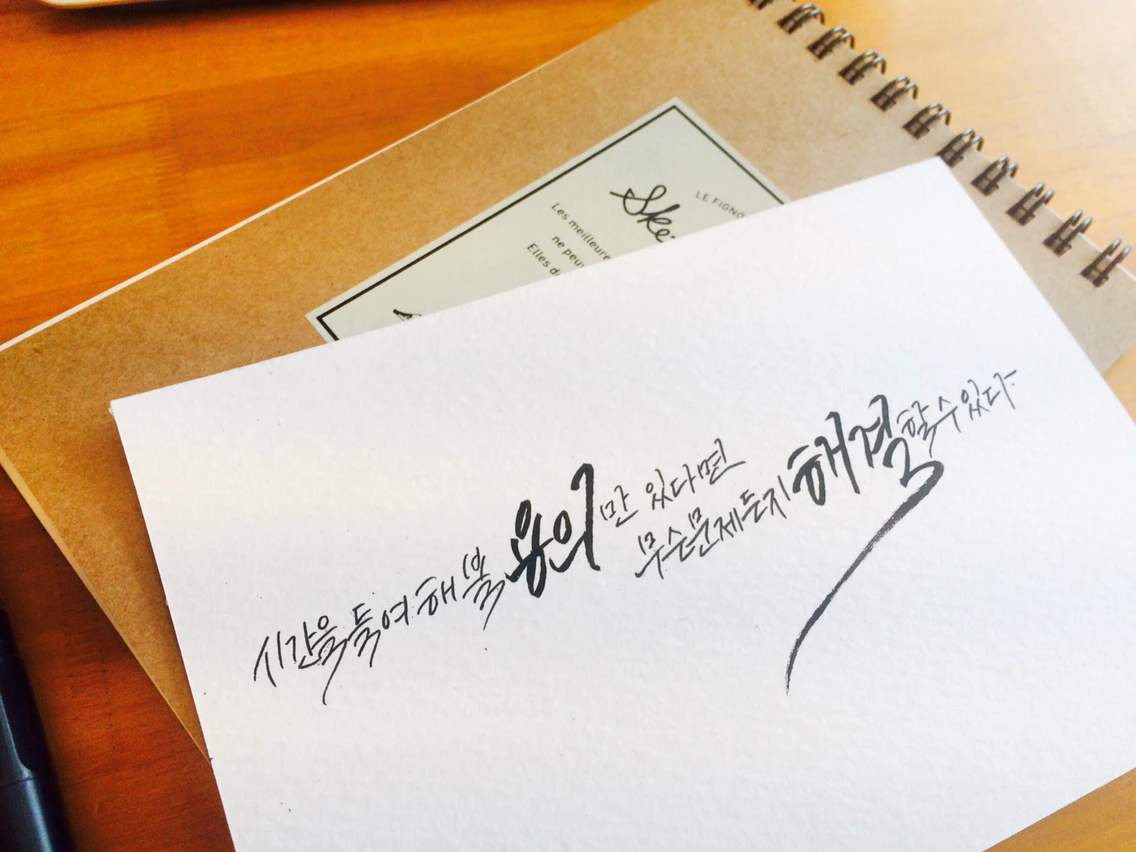 LE FIGNO
Ske
Les meilleure
ne peuv
Elles d
시간을 들여 해볼 용의만 있다면
무슨 문제든지 해결할 수 있다.